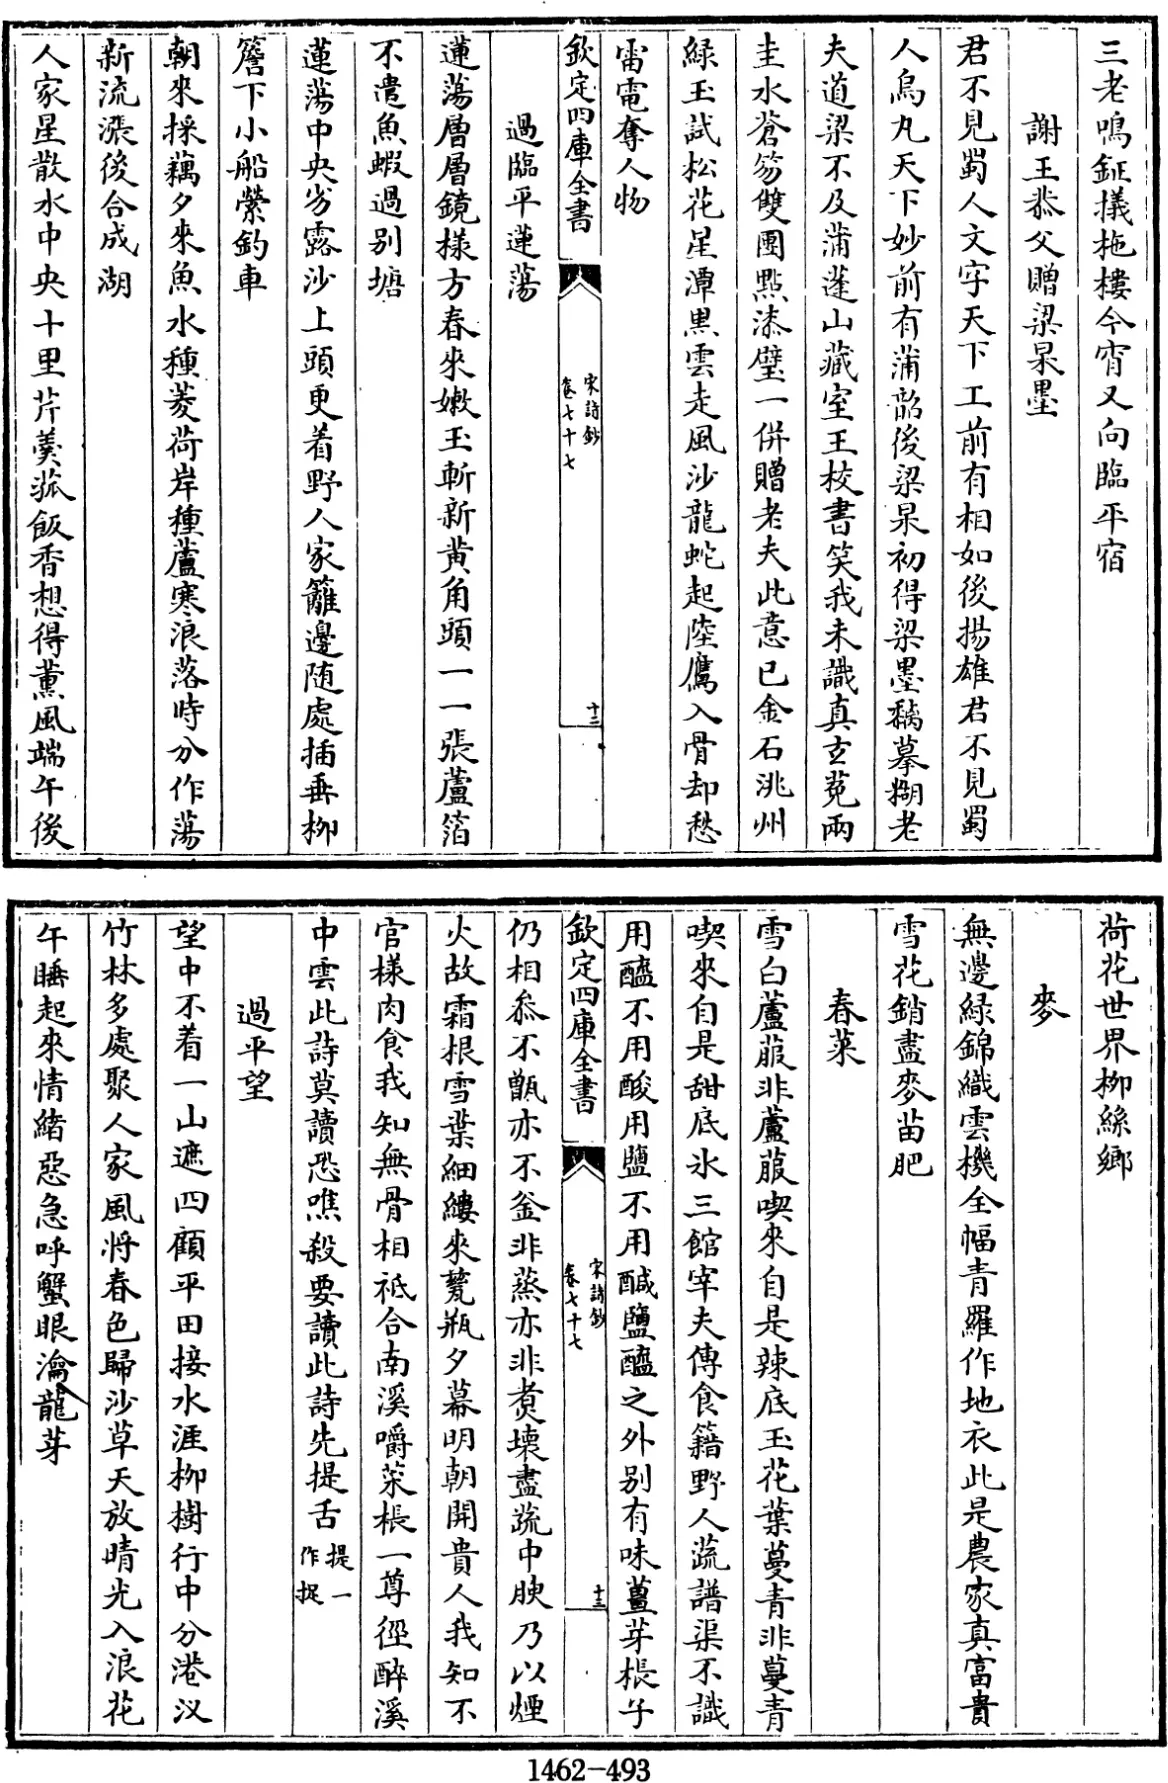 三老鳴鉦攙柂樓今宵又向臨平宿
謝王恭父贈梁杲墨
君不見蜀人文字天下工前有相如後揚雄君不見蜀
人烏丸天下妙前有蒲韶後梁杲初得梁墨藕摹糊老
夫道梁不及蒲蓬山藏室王校書笑我未識真玄菟兩
圭水蒼笏雙團點漆璧一併贈老夫此意已金石洮州
緑玉試松花星潭黒雲走風沙龍蛇起陸鷹入骨却愁
雷電奪人物
欽定四庫全書
宋詩鈔
卷七十七
十三
過臨平蓮蕩
蓮蕩層層鏡様方春來嫩玉斬新黄角頭一一張蘆箔
不遣魚蝦過别塘
蓮蕩中央劣露沙上頭更着野人家籬邊随處插垂柳
簷下小船縈釣車
朝來採藕夕來魚水種菱荷岸種蘆寒浪落時分作蕩
新流漲後合成湖
人家星散水中央十里芹羮菰飯香想得薫風端午後
荷花世界柳絲鄉
麥
無邊緑錦織雲機全幅青羅作地衣此是農家真富貴
雪花銷盡麥苗肥
春菜
雪白蘆菔非蘆菔喫來自是辣底玉花葉蔓青非蔓青
喫來自是甜底氷三館宰夫傳食籍野人蔬譜渠不識
用醯不用酸用鹽不用鹹鹽醯之外别有味薑芽棖子
欽定四庫全書
宋詩鈔
卷七十七
十三
仍相叅不甑亦不釜非蒸亦非煑壊盡蔬中腴乃以煙
火故霜根雪葉細縷來甆瓶夕幕明朝開貴人我知不
官様肉食我知無骨相祗合南溪嚼菜棖一尊徑醉溪
中雲此詩莫讀恐嚥殺要讀此詩先提舌
提一
作捉
過平望
望中不着一山遮四顧平田接水涯柳樹行中分港汊
竹林多處聚人家風将春色歸沙草天放晴光入浪花
午睡起來情緒惡急呼蟹眼瀹龍芽
1462-493